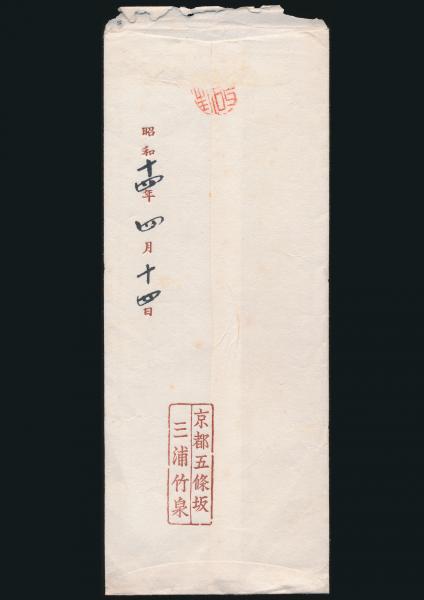 昭和十四年四月十四日
京都五條坂
三浦竹泉